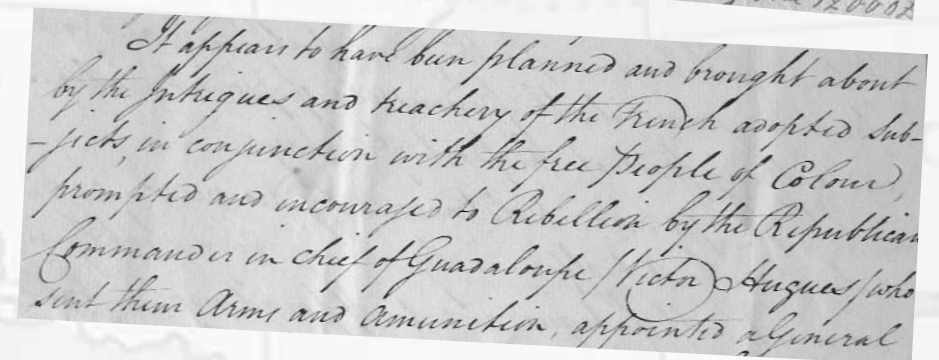 It appears to have been planned and brought about
by the Intrigues and treachery of the French adopted Sub-
-jects, in conjunction with the free People of Colour,
prompted and incouraged to Rebellion by the Republican
Commander in chief of Guadaloupe /Victor Hugues/ who
sent them Arms and Amunition, appointed a General